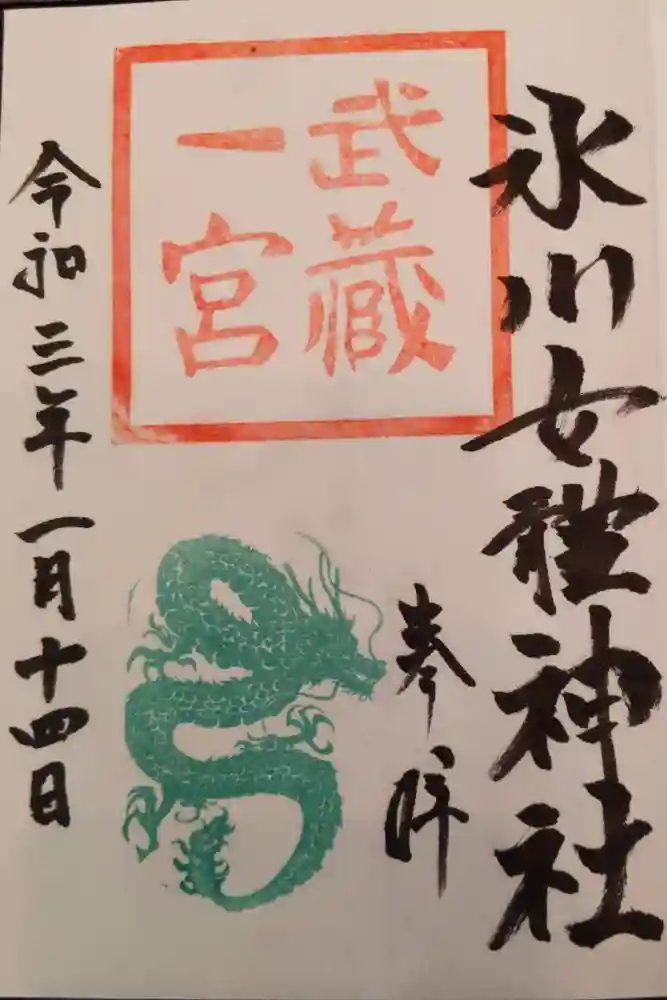 氷川女體神社
奉拝
武蔵
一宮
令和三年一月十四日